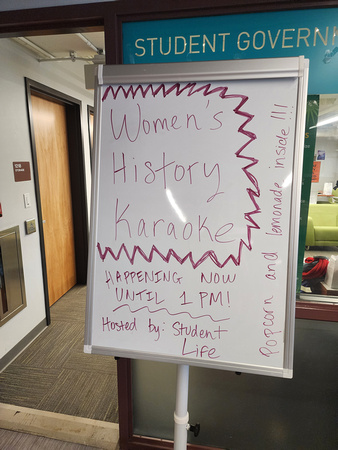 STUDENT GOVERN
Women's
History
Karaoke
HAPPENING NOW
UNTIL 1 PM!
Hosted by: Student
Life
Popcorn and lemonade inside!!!